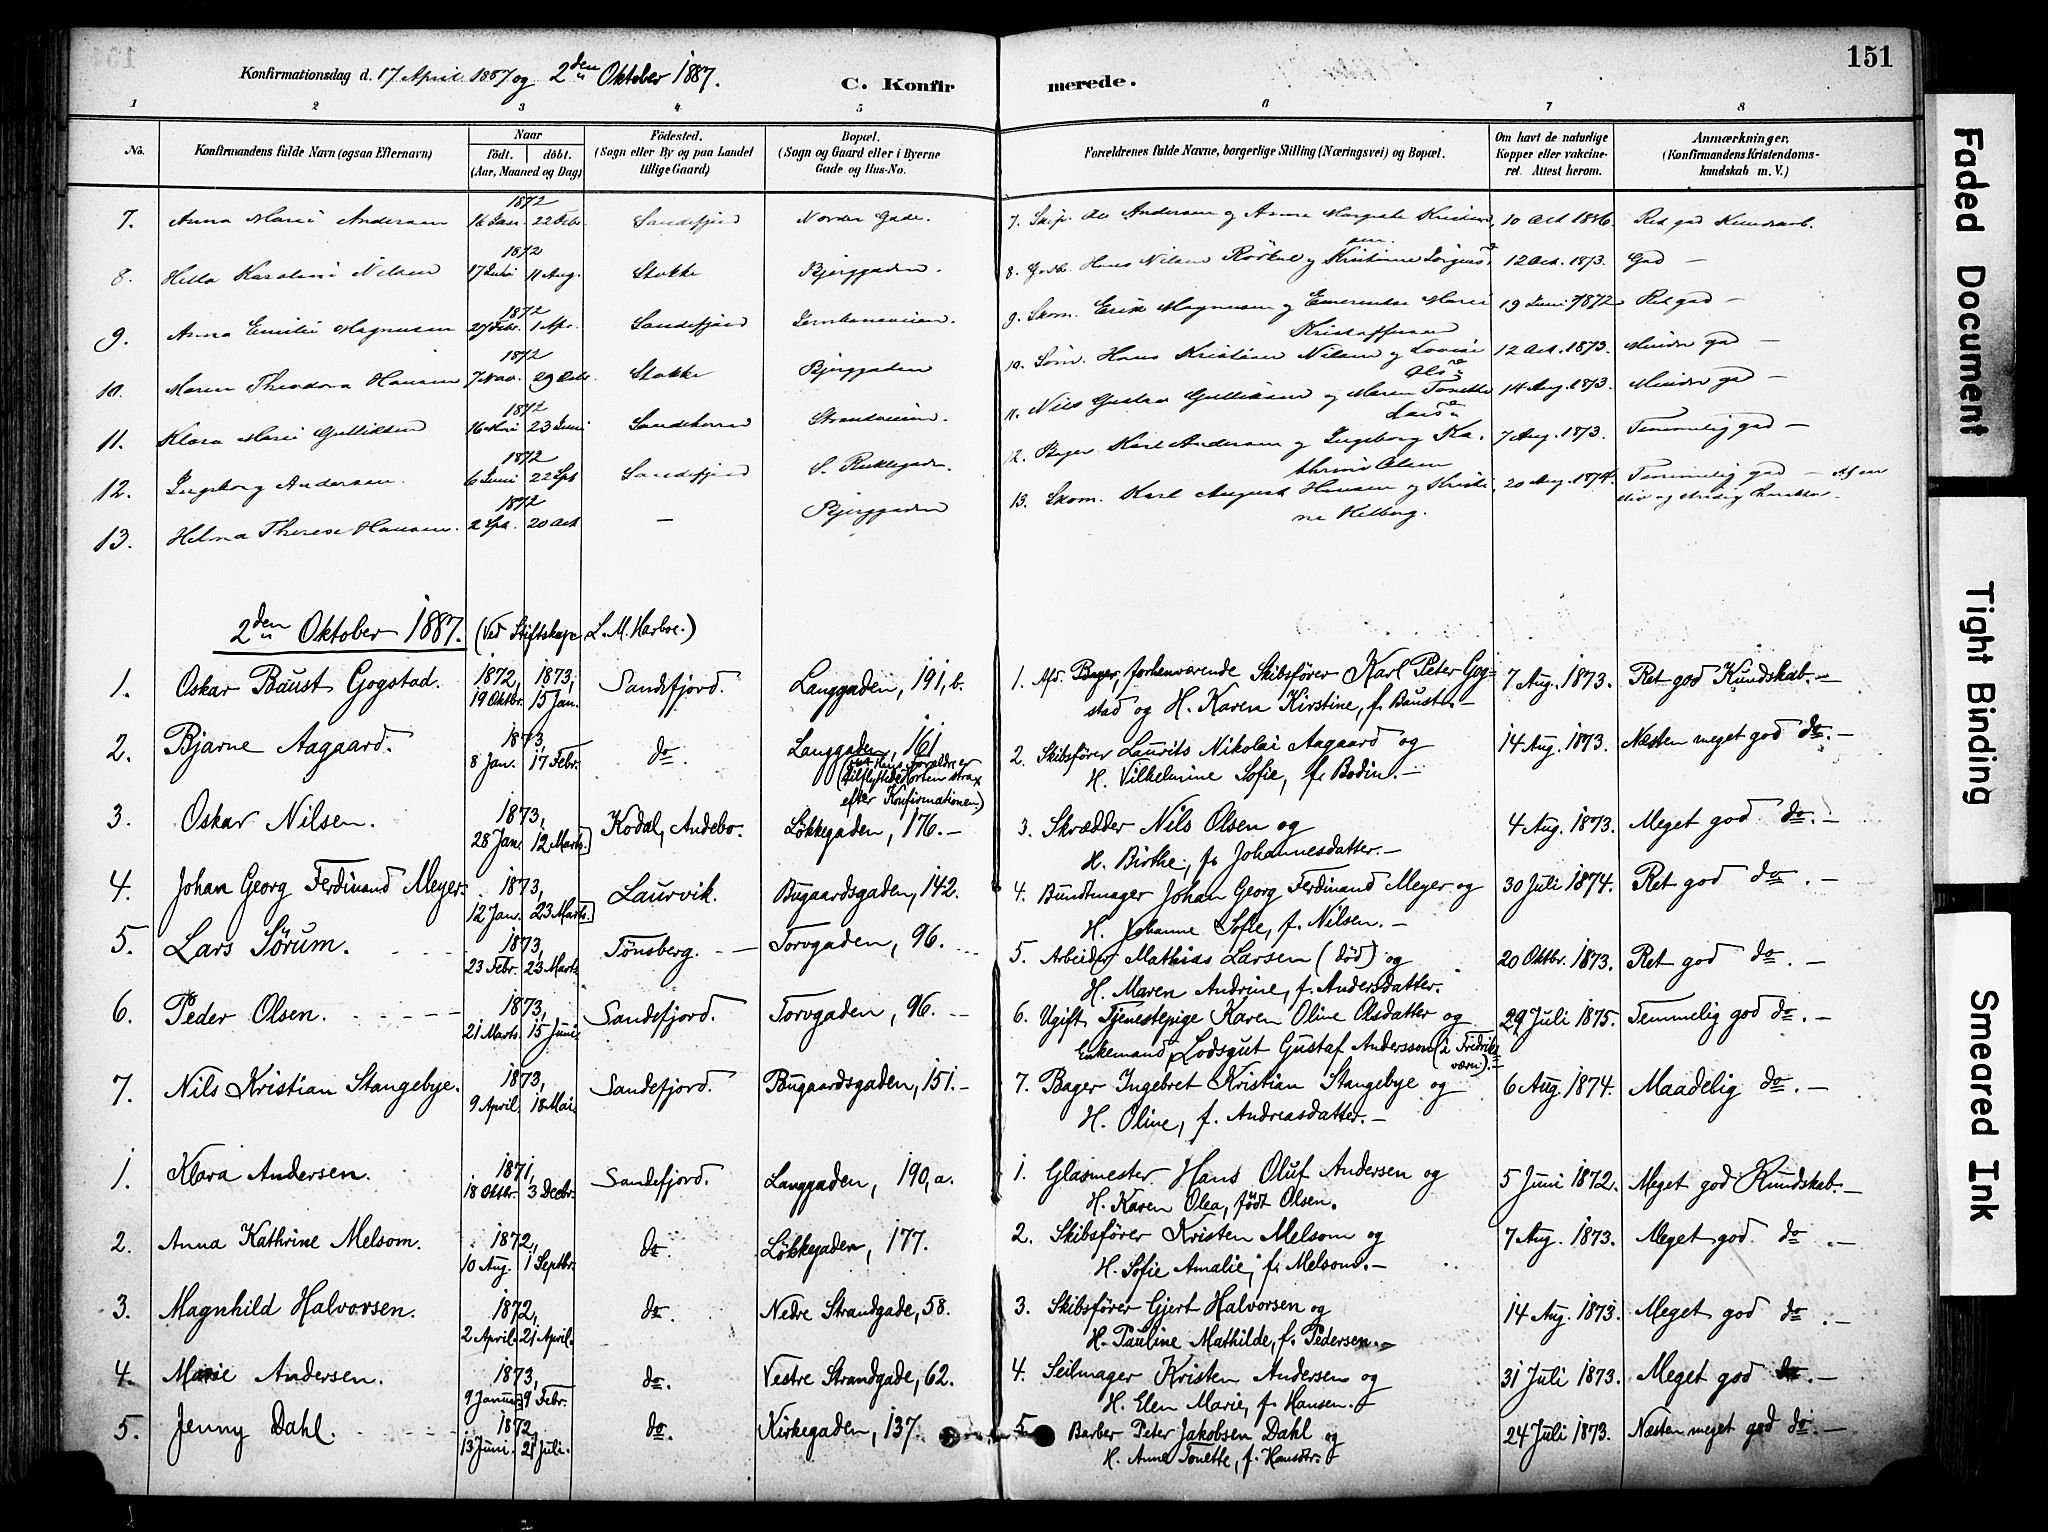 151
Konfirmationsdag d. 17 April 1887 og 2den Oktober 1887.
C. Konfirmerede.
1 2 3 4 5 6 7 8
No.
Konfirmandens fulde Navn (ogsaa Efternavn)
Naar
født. døbt.
(Aar, Maaned og Dag)
Fødested.
(Sogn eller By og paa Landet
tillige Gaard)
Bopæl.
(Sogn og Gaard eller i Byerne
Gade og Hus-No.
Forældrenes fulde Navne, borgerlige Stilling (Næringsvei) og Bopæl.
Om havt de naturlige
Kopper eller vakcine-
ret. Attest herom.
Anmærkninger.
(Konfirmandens Kristendoms-
kundskab m. V.)
1872
7. Anna Marie Andersen 16 Jan. 22 Febr. Sandefjord Nordre Gade. 7. Skip. Ole Andersen og Anne Margrete 10 Oct 1886. Ret god Kundskab.
1872
8. Hilda Karoline Nilsen 17 Juni 11 Aug. Stokke Bjerggaden. 8. Hans Nilsen og Kristine 12 Oct. 1873. God —
1872
9. Anna Emilie Magnusen 27 Febr. 1 Apr. Sandefjord Jernbaneveien. 9. Skom. Erik Magnusen og Emerentse Marie 19 Juni 1872 Ret god —
Kristoffersen
1872
10. Maren Theodora Hansen 7 Nov. 29 Stokke Bjerggaden 10. Søm. Hans Kristian Nilsen og Lovise 12 Oct. 1873. Mindre god —
1872
11. Klara Marie Gulliksen 16 Mai 23 Juni Sandeherred Strandveien. 11. Nils Gustav Gulliksen og Maren Tonette 14 Aug. 1873. Mindre god —
1872
12. Ingeborg Andersen. 6 Juni 22 Spt Sandefjord S. 12. Bager Karl Andersen og Ingeborg Ka- 7 Aug. 1873. Temmelig god —
thrine Olsen
1872
13. Helma Therese Hansen. 2 Spt. 20 Oct — Bjerggaden 13. Skom. Karl August Hansen og Kristi- 20 Aug. 1874. Temmelig god — Af en
ne Kelberg. stiv og stridig Karakter.
2den Oktober 1887. (Ved Stiftskap. L. M. Harboe.)
1. Oskar Baust Gogstad. 1872, 19 Oktbr. 1873, 15 Jan. Sandefjord. Langgaden, 191, b. 1. Afs. Bager, forhenværende Skibsfører Karl Peter Gog- 7 Aug. 1873. Ret god Kundskab. —
stad og H. Karen Kirstine, f. Baust. —
1873,
2. Bjarne Aagaard. 8 Jan. 17 Febr. do. Langgaden, 161 2. Skibsfører Laurits Nikolai Aagaard og 14 Aug. 1873. Næsten meget god do. —
H. Vilhelmine Sofie, f. Bodin. —
efter Konfirmationen.)
1873,
3. Oskar Nilsen. 28 Jan. 12 Marts Kodal, Andebo. Løkkegaden, 176. — 3. Skrædder Nils Olsen og 4 Aug. 1873. Meget god do. —
H. Birthe, f. Johannesdatter. —
1873,
4. Johan Georg Ferdinand Meyer. 12 Jan. 23 Marts Laurvik. Bugaardsgaden, 142. 4. Bundtmager Johan Georg Ferdinand Meyer og 30 Juli 1874. Ret god do. —
H. Johanne Sofie, f. Nilsen. —
1873,
5. Lars Sørum. 23 Febr. 23 Marts Tønsberg. — Torvgaden, 96. 5. Arbeider Mathias Larsen (død) og 20 Oktbr. 1873. Ret god do. —
H. Maren Andrine, f. Andersdatter.
1873,
6. Peder Olsen. 21 Marts. 15 Juni Sandefjord. Torvgaden, 96. 6. Ugift Tjenestepige Karen Oline Olsdatter og 29 Juli 1875. Temmelig god do. —
Enkemand Lodsgut Gustaf Andersson (i Fredriks-
værn). —
1873,
7. Nils Kristian Stangebye. 9 April. 18 Mai. Sandefjord. Bugaardsgaden, 151. — 7. Bager Ingebret Kristian Stangebye og 6 Aug. 1874. Maadelig do. —
H. Oline, f. Andreasdatter. —
1871,
1. Klara Andersen. 18 Oktbr. 3 Decbr. Sandefjord. Langgaden, 190, a. 1. Glasmester Hans Oluf Andersen og 5 Juni 1872. Meget god Kundskab. —
H. Karen Olea, født Olsen.
1872,
2. Anna Kathrine Melsom. 10 Aug. 1 Septbr. do. Løkkegaden, 177. 2. Skibsfører Kristen Melsom og 7 Aug. 1873. Meget god do. —
H. Sofie Amalie, f. Melsom. —
1872,
3. Magnhild Halvorsen. 2 April. 21 April. do. Nedre Strandgade, 58. 3. Skibsfører Gjert Halvorsen og 14 Aug. 1873. Meget god do. —
H. Pauline Mathilde, f. Pedersen. —
1873,
4. Marie Andersen. 9 Januar 9 Febr. do. Vestre Strandgade, 62. 4. Seilmager Kristen Andersen og 31 Juli 1873. Meget god do. —
H. Elen Marie, f. Hansen. —
1872,
5. Jenny Dahl. 13 Juni. 21 Juli. do. Kirkegaden, 137. 5. Barber Peter Jakobsen Dahl og 24 Juli 1873. Næsten meget god do. —
H. Anne Tonette, f. Hansdtr. —
Faded Document
Tight Binding
Smeared Ink